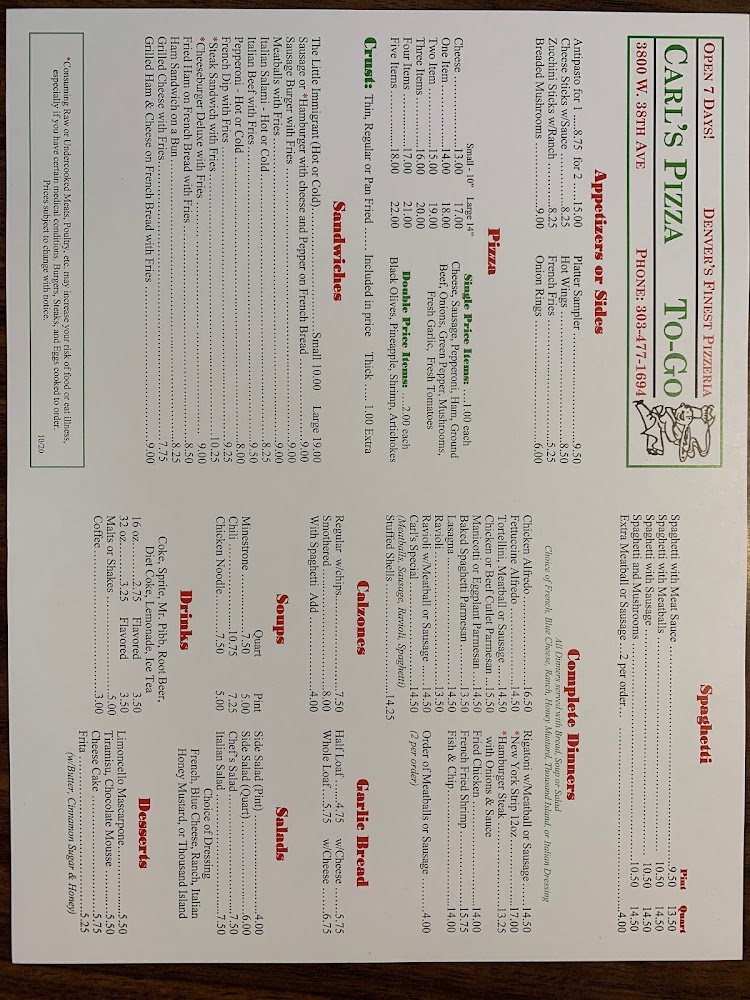 OPEN 7 DAYS! DENVER'S FINEST PIZZERIA
CARL'S PIZZA TO-GO
3800 W. 38TH AVE PHONE: 303-477-1694
Appetizers or Sides
Antipasto for 1.....8.75 for 2 .....15.00
Cheese Sticks w/Sauce ..........8.25
Zucchini Sticks w/Ranch ..........8.25
Breaded Mushrooms ..........9.00
Platter Sampler ..........9.50
Hot Wings ..........8.50
French Fries ..........5.25
Onion Rings ..........6.00
Pizza
Small - 10" Large 14"
Cheese ..........13.00 17.00
One Item ..........14.00 18.00
Two Item ..........15.00 19.00
Three Items ..........16.00 20.00
Four Items ..........17.00 21.00
Five Items ..........18.00 22.00
Single Price Items: ....1.00 each
Cheese, Sausage, Pepperoni, Ham, Ground
Beef, Onions, Green Pepper, Mushrooms,
Fresh Garlic, Fresh Tomatoes
Double Price Items: ....2.00 each
Black Olives, Pineapple, Shrimp, Artichokes
Crust: Thin, Regular or Pan Fried ..... Included in price Thick ..... 1.00 Extra
Sandwiches
The Little Immigrant (Hot or Cold) .......... Small 10.00 Large 19.00
Sausage or *Hamburger with cheese and Pepper on French Bread ..........9.00
Sausage Burger with Fries ..........9.00
Meatballs with Fries ..........9.00
Italian Salami - Hot or Cold ..........8.25
Italian Beef with Fries ..........9.50
Pepperoni - Hot or Cold ..........8.00
French Dip with Fries ..........9.25
*Steak Sandwich with Fries ..........10.25
*Cheeseburger Deluxe with Fries ..........9.00
Fried Ham on French Bread with Fries ..........8.50
Ham Sandwich on a Bun ..........8.25
Grilled Cheese with Fries ..........7.75
Grilled Ham & Cheese on French Bread with Fries ..........9.00
*Consuming Raw or Undercooked Meats, Poultry, etc. may increase your risk of food or eat illness,
especially if you have certain medical conditions. Burgers, Steaks, and Eggs cooked to order.
Prices subject to change with notice.
10/20
Spaghetti
Pint Quart
Spaghetti with Meat Sauce ..........9.50 13.50
Spaghetti with Meatballs ..........10.50 14.50
Spaghetti with Sausage ..........10.50 14.50
Spaghetti and Mushrooms ..........10.50 14.50
Extra Meatball or Sausage ... 2 per order.... ..........4.00
Complete Dinners
All Dinners served with Bread, Soup or Salad
Choice of French, Blue Cheese, Ranch, Honey Mustard, Thousand Island, or Italian Dressing
Chicken Alfredo ..........16.50
Fettuccine Alfredo ..........14.50
Tortellini, Meatball or Sausage ..........14.50
Chicken or Beef Cutlet Parmesan ..........15.50
Manicotti or Eggplant Parmesan ..........14.50
Baked Spaghetti Parmesan ..........13.50
Lasagna ..........14.50
Ravioli ..........13.50
Ravioli w/Meatball or Sausage ..........14.50
Carl's Special ..........14.50
(Meatballs, Sausage, Ravioli, Spaghetti)
Stuffed Shells ..........14.25
Rigatoni w/Meatball or Sausage ..........14.50
*New York Strip 12oz ..........17.00
*Hamburger Steak ..........13.25
with Onions & Sauce
Fried Chicken ..........14.00
French Fried Shrimp ..........15.75
Fish & Chip ..........14.00
Order of Meatballs or Sausage ..........4.00
(2 per order)
Calzones
Regular w/chips ..........7.50
Smothered ..........8.00
With Spaghetti Add ..........4.00
Garlic Bread
Half Loaf ..........4.75 w/Cheese ..... 5.75
Whole Loaf .....5.75 w/Cheese ..... 6.75
Soups
Quart Pint
Minestrone ..........7.50 5.00
Chili ..........10.75 7.25
Chicken Noodle ..........7.50 5.00
Salads
Side Salad (Pint) ..........4.00
Side Salad (Quart) ..........6.00
Chef's Salad ..........7.50
Italian Salad ..........7.50
Choice of Dressing
French, Blue Cheese, Ranch, Italian
Honey Mustard, or Thousand Island
Drinks
Coke, Sprite, Mr. Pibb, Root Beer,
Diet Coke, Lemonade, Ice Tea
16 oz ..........2.75 Flavored 3.50
32 oz ..........3.25 Flavored 3.50
Malts or Shakes ..........5.00
Coffee ..........3.00
Desserts
Limoncello Mascarpone ..........5.50
Tiramisu, Chocolate Mousse ..........5.50
Cheese Cake ..........5.75
Frita ..........5.25
(w/Butter, Cinnamon Sugar & Honey)